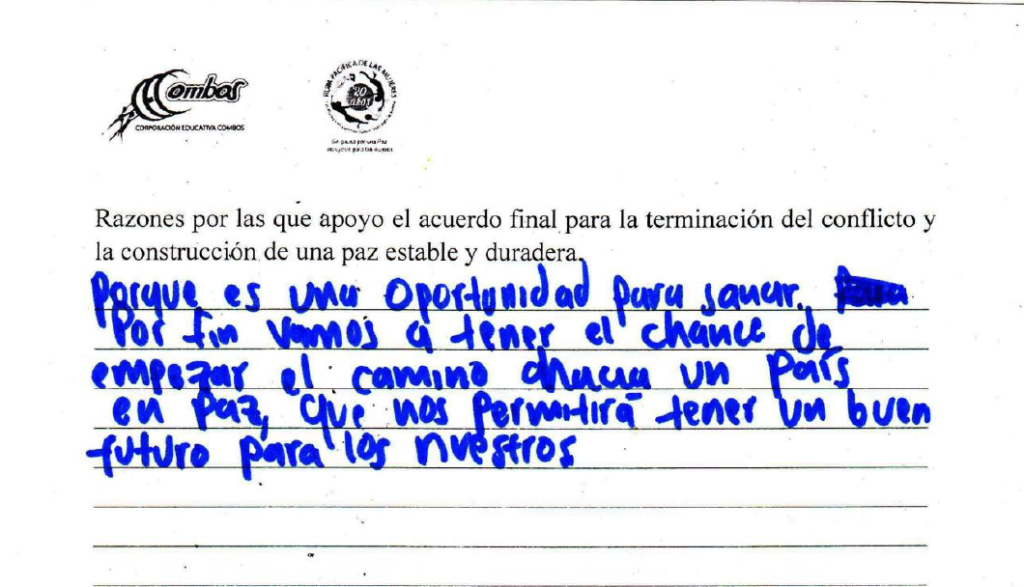 Combos
CORPORACIÓN EDUCATIVA COMBOS
RUTA PACÍFICA DE LAS MUJERES
20 AÑOS
Razones por las que apoyo el acuerdo final para la terminación del conflicto y
la construcción de una paz estable y duradera.
Porque es una oportunidad para sanar.
Por fin vamos a tener el chance de
empezar el camino hacia un País
en Paz, que nos permitirá tener un buen
futuro para los nuestros